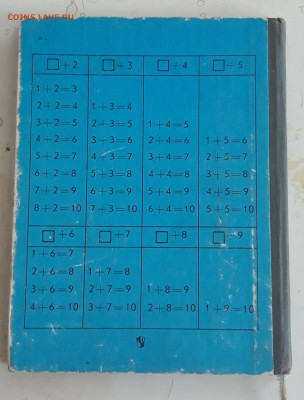 □+2
1+2=3
2+2=4
3+2=5
4+2=6
5+2=7
6+2=8
7+2=9
8+2=10
□+3
1+3=4
2+3=5
3+3=6
4+3=7
5+3=8
6+3=9
7+3=10
□+4
1+4=5
2+4=6
3+4=7
4+4=8
5+4=9
6+4=10
□+5
1+5=6
2+5=7
3+5=8
4+5=9
5+5=10
□+6
1+6=7
2+6=8
3+6=9
4+6=10
□+7
1+7=8
2+7=9
3+7=10
□+8
1+8=9
2+8=10
□+9
1+9=10